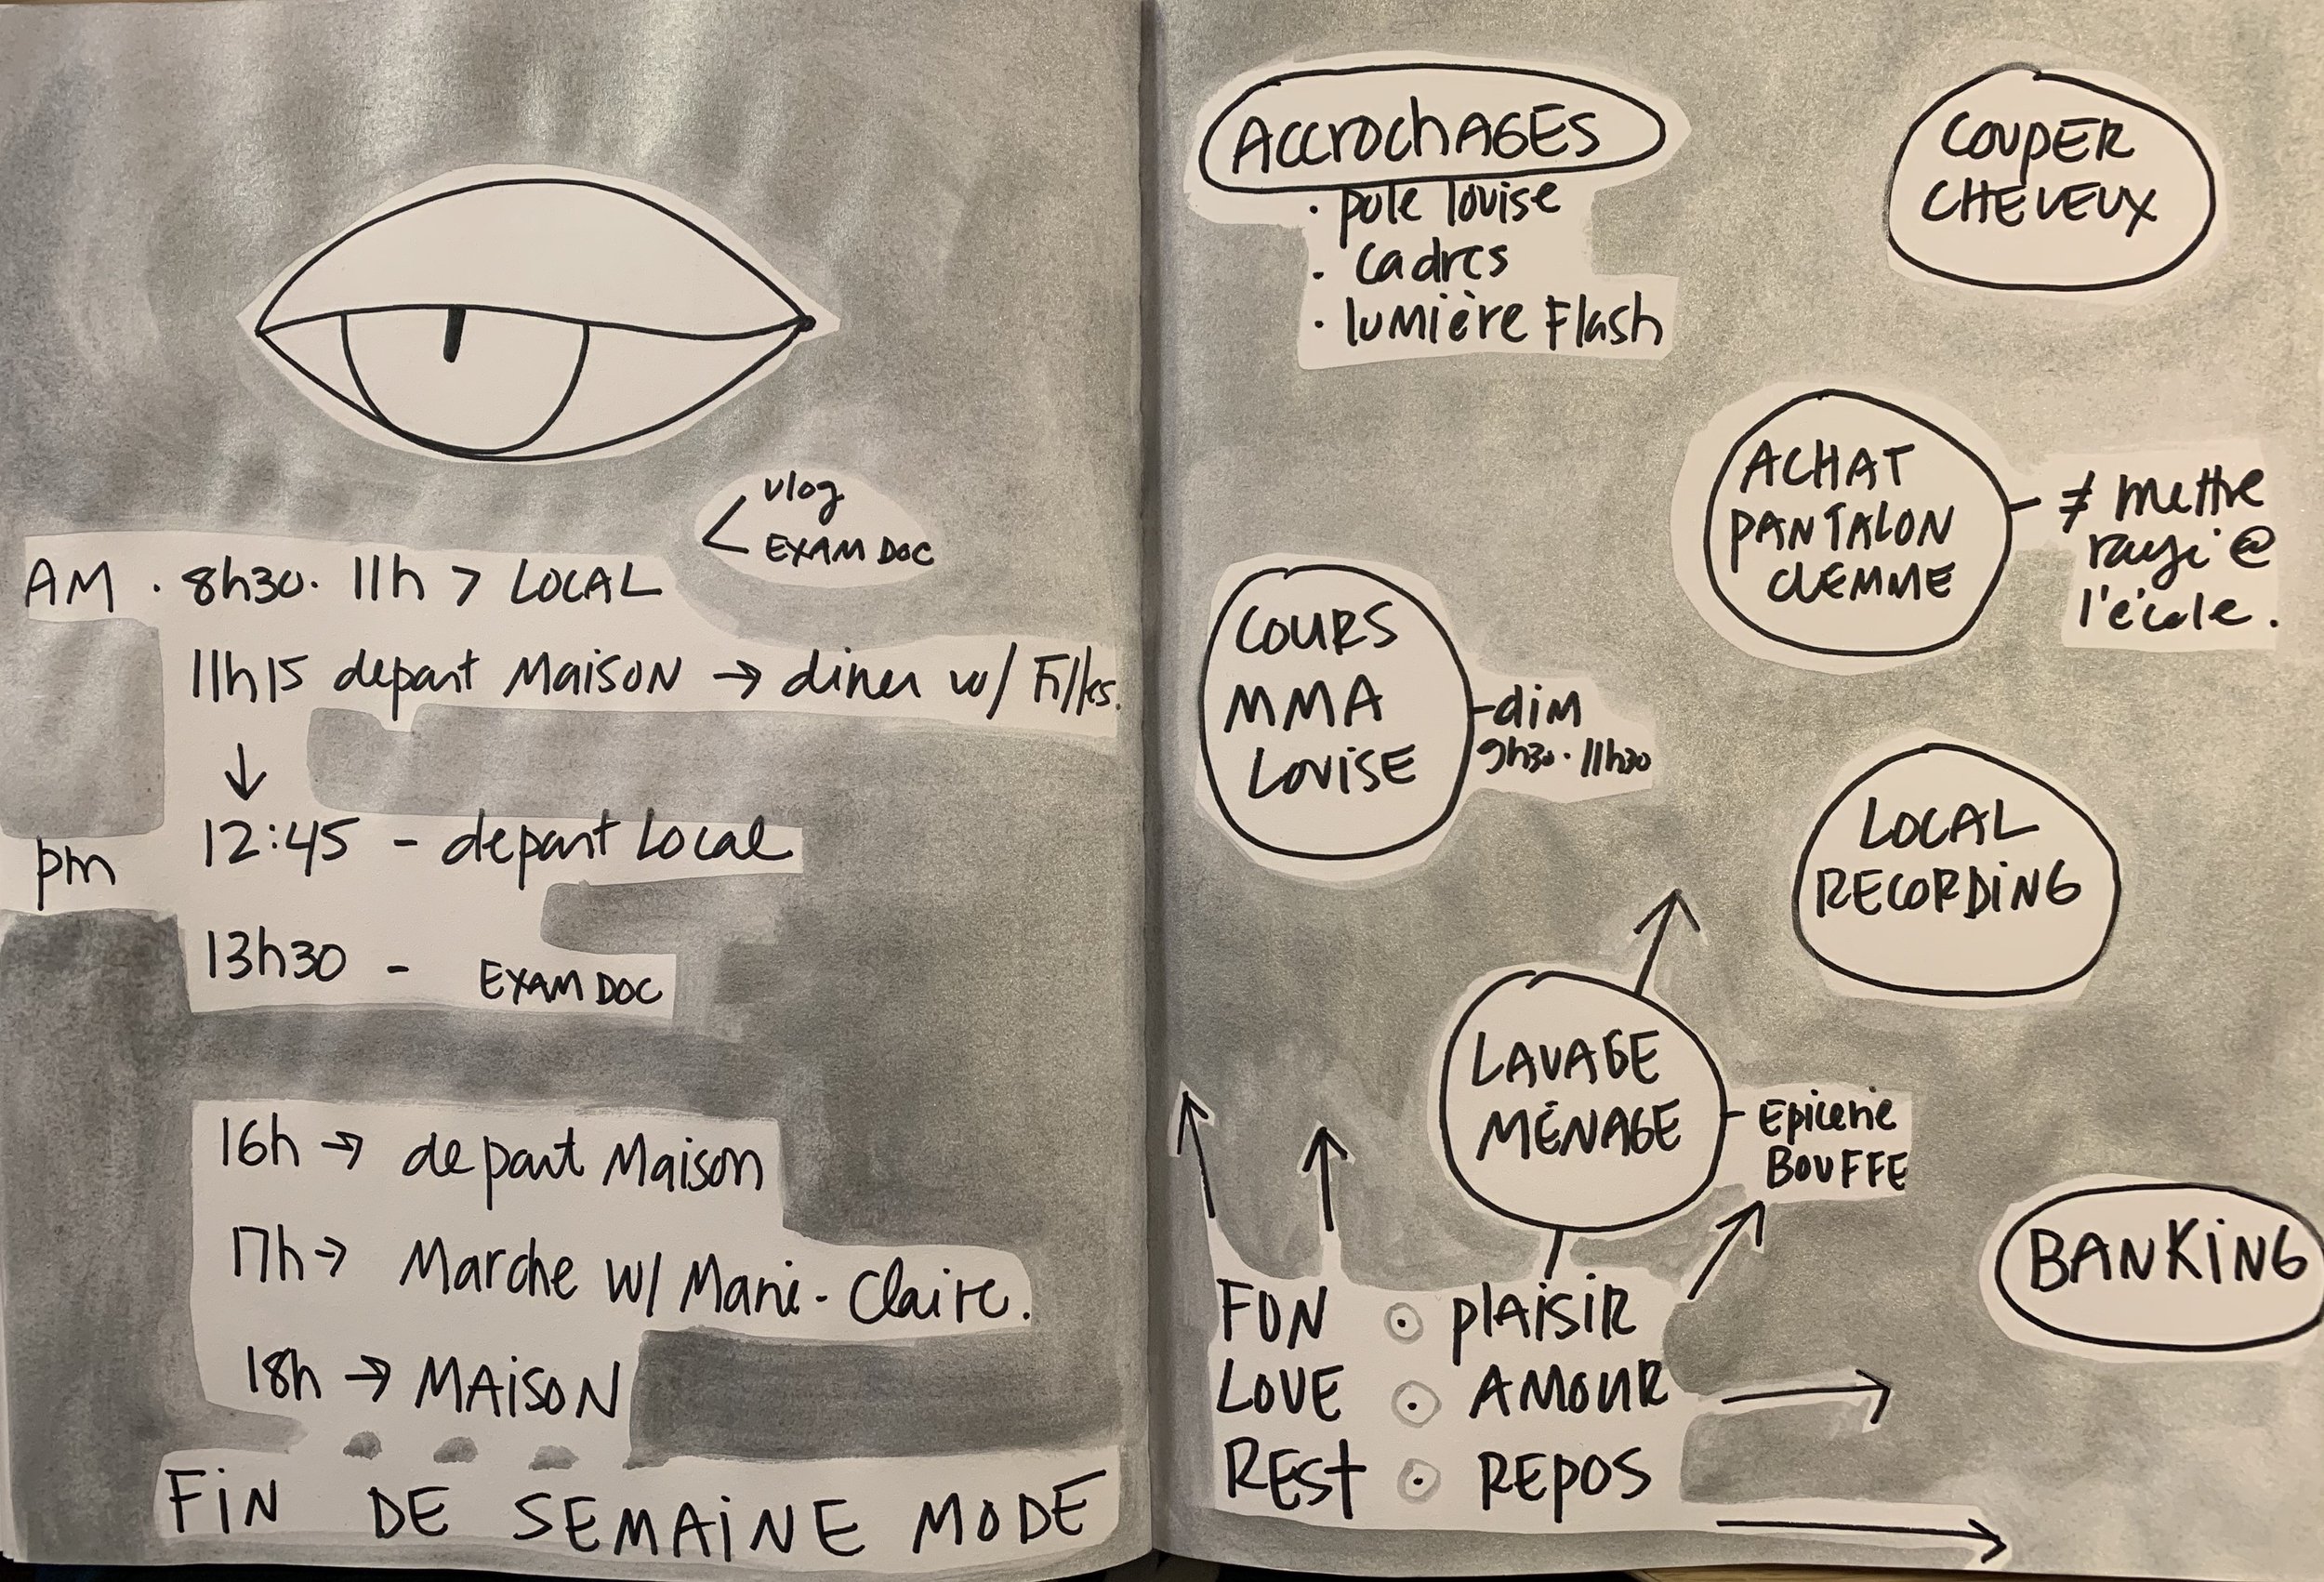 vlog
EXAM DOC
AM . 8h30. 11h > LOCAL
11h15 depart MAiSON → diner w/ Filles.
↓
pm 12:45 - depart Local
13h30 - EXAM DOC
16h → depart Maison
17h → Marche w/ Marie-Claire.
18h → MAiSON
FiN DE SEMAiNE MODE
ACCrOChAGES
. pole louise
. cadres
. lumière Flash
COUPER
CHEVEUX
ACHAT
PANTALON
CLEMME
≠ mettre
rayé @
l'école.
COURS
MMA
LOUiSE
-dim
9h30. 11h30
LOCAL
RECORDiNG
LAVAGE
MÉNAGE
- Epicerie
BOUFFE
BANKiNG
FUN ⊙ PlAiSiR
LOVE ⊙ AMOUR
REST ⊙ REPOS